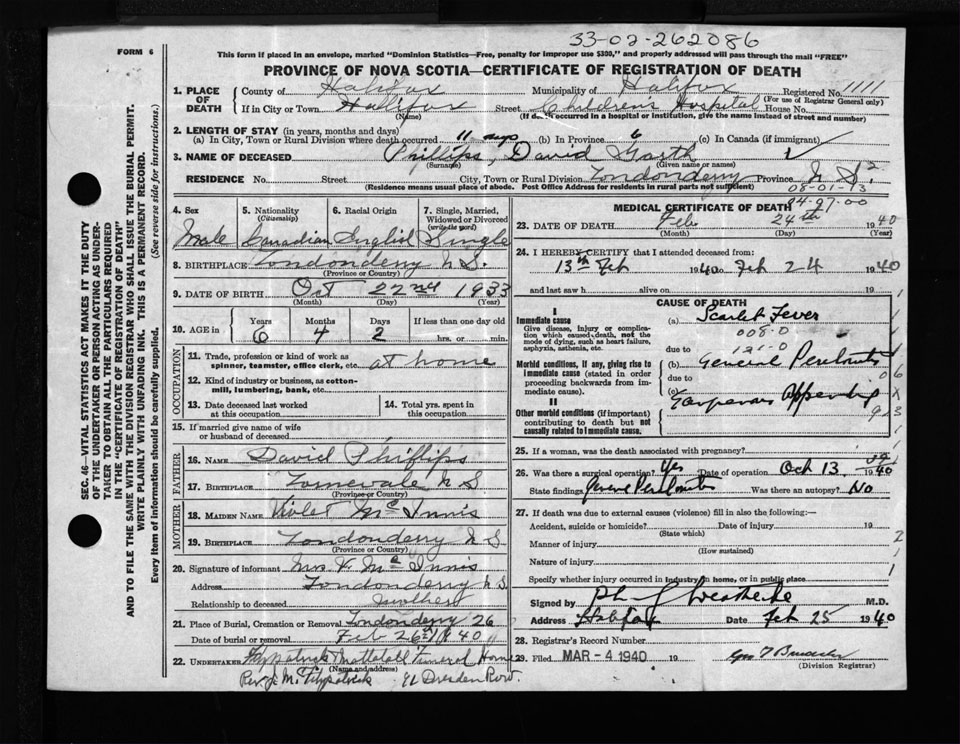 33-02-262086
FORM 6
This form if placed in an envelope, marked "Dominion Statistics—Free, penalty for improper use $300," and properly addressed will pass through the mail "FREE"
PROVINCE OF NOVA SCOTIA—CERTIFICATE OF REGISTRATION OF DEATH
SEC. 46—VITAL STATISTICS ACT MAKES IT THE DUTY
OF THE UNDERTAKER OR PERSON ACTING AS UNDER-
TAKER TO OBTAIN ALL THE PARTICULARS REQUIRED
IN THE "CERTIFICATE OF REGISTRATION OF DEATH"
AND TO FILE THE SAME WITH THE DIVISION REGISTRAR WHO SHALL ISSUE THE BURIAL PERMIT.
WRITE PLAINLY WITH UNFADING INK. THIS IS A PERMANENT RECORD.
Every item of Information should be carefully supplied. (See reverse side for instructions.)
1. PLACE OF DEATH County of Halifax Municipality of Halifax Registered No. 1111
(For use of Registrar General only)
If in City or Town Halifax Street Childrens Hospital House No.
(Name) (If death occurred in a hospital or institution, give the name instead of street and number)
2. LENGTH OF STAY (in years, months and days)
(a) In City, Town or Rural Division where death occurred 11 days (b) In Province 6 (c) In Canada (if immigrant)
3. NAME OF DECEASED Phillips, David Garth
(Surname) (Given name or names)
RESIDENCE No. Street City, Town or Rural Division Londonderry Province N S.
(Residence means usual place of abode. Post Office Address for residents in rural parts not sufficient)
08-01-13
4. Sex 5. Nationality (Citizenship) 6. Racial Origin 7. Single, Married, Widowed or Divorced (write the word)
Male Canadian English Single
8. BIRTHPLACE Londonderry N S.
(Province or Country)
9. DATE OF BIRTH Oct 22nd 1933
(Month) (Day) (Year)
10. AGE in Years Months Days If less than one day old
6 4 2 hrs. or min.
OCCUPATION
11. Trade, profession or kind of work as spinner, teamster, office clerk, etc. at home
12. Kind of industry or business, as cotton-mill, lumbering, bank, etc.
13. Date deceased last worked at this occupation 14. Total yrs. spent in this occupation
15. If married give name of wife or husband of deceased
FATHER
16. NAME David Phillips
17. BIRTHPLACE N S
(Province or Country)
MOTHER
18. MAIDEN NAME Violet McInnis
19. BIRTHPLACE Londonderry N S
(Province or Country)
20. Signature of informant Mrs V McInnis
Address Londonderry N S
Relationship to deceased
21. Place of Burial, Cremation or Removal Londonderry 26
Date of burial or removal Feb 26th 1940
22. UNDERTAKER Fitzpatrick Mattatall Funeral Home
(Name and address)
Rev. J. M. Fitzpatrick 81 Dresden Row.
MEDICAL CERTIFICATE OF DEATH
84-97-00
23. DATE OF DEATH Feb 24th 1940
(Month) (Day) (Year)
24. I HEREBY CERTIFY that I attended deceased from:
13th Feb 1940 to Feb 24 1940
and last saw h alive on 19
CAUSE OF DEATH
I
Immediate cause
Give disease, injury or complication which caused death, not the mode of dying, such as heart failure, asphyxia, asthenia, etc.
(a) Scarlet Fever
008-0
121-0
due to
Morbid conditions, if any, giving rise to immediate cause (stated in order proceeding backwards from immediate cause).
(b) General Peritonitis
due to
(c)
II
Other morbid conditions (if important) contributing to death but not causally related to immediate cause.
25. If a woman, was the death associated with pregnancy?
26. Was there a surgical operation? Yes Date of operation Oct 13 1940
State findings Was there an autopsy? No
27. If death was due to external causes (violence) fill in also the following:—
Accident, suicide or homicide? Date of injury 19
(State which)
Manner of injury
(How sustained)
Nature of injury
Specify whether injury occurred in Industry, in home, or in public place
Signed by M.D.
Address Halifax Date Feb 25 1940
28. Registrar's Record Number
29. Filed MAR - 4 1940 19
(Division Registrar)